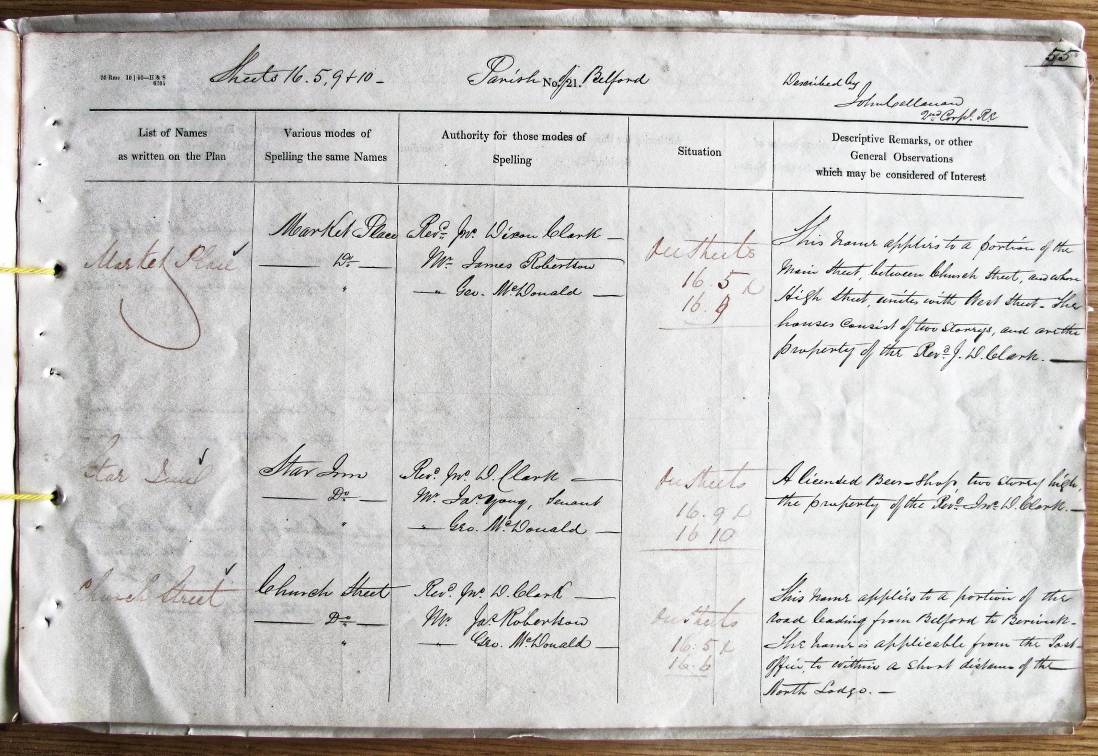 55
Sheets 16. 5, 9 + 10 -
Parish No. 21. of Belford
Described by
John Cellanan
2nd Corpl. RE
List of Names
as written on the Plan
Various modes of
Spelling the same Names
Authority for those modes of
Spelling
Situation
Descriptive Remarks, or other
General Observations
which may be considered of Interest
Market Place
Market Place
Do.
"
Revd. Jno. Dixon Clark
Mr. James Robertson
" Geo. McDonald
On Sheets
16. 5 &
16. 9
This Name applies to a portion of the
Main Street, between Church Street, and where
High Street, unites with West Street - The
houses consist of two Storrys, and are the
property of the Revd. J. D. Clark.
Star Inn
Star Inn
Do.
"
Revd. Jno. D. Clark
Mr. Jas. Young, Tenant
" Geo. McDonald
On Sheets
16. 9 &
16 10
A licensed Beer-Shop, two storry high,
the property of the Revd. Jno. D. Clark.
Church Street
Church Street
Do.
"
Revd. Jno. D. Clark
Mr. Jas. Robertson
" Geo. McDonald
On Sheets
16. 5 &
16. 6
This Name applies to a portion of the
road leading from Belford to Berwick.
The Name is applicable from the Post-
office, to within a short distance of the
North Lodge. -